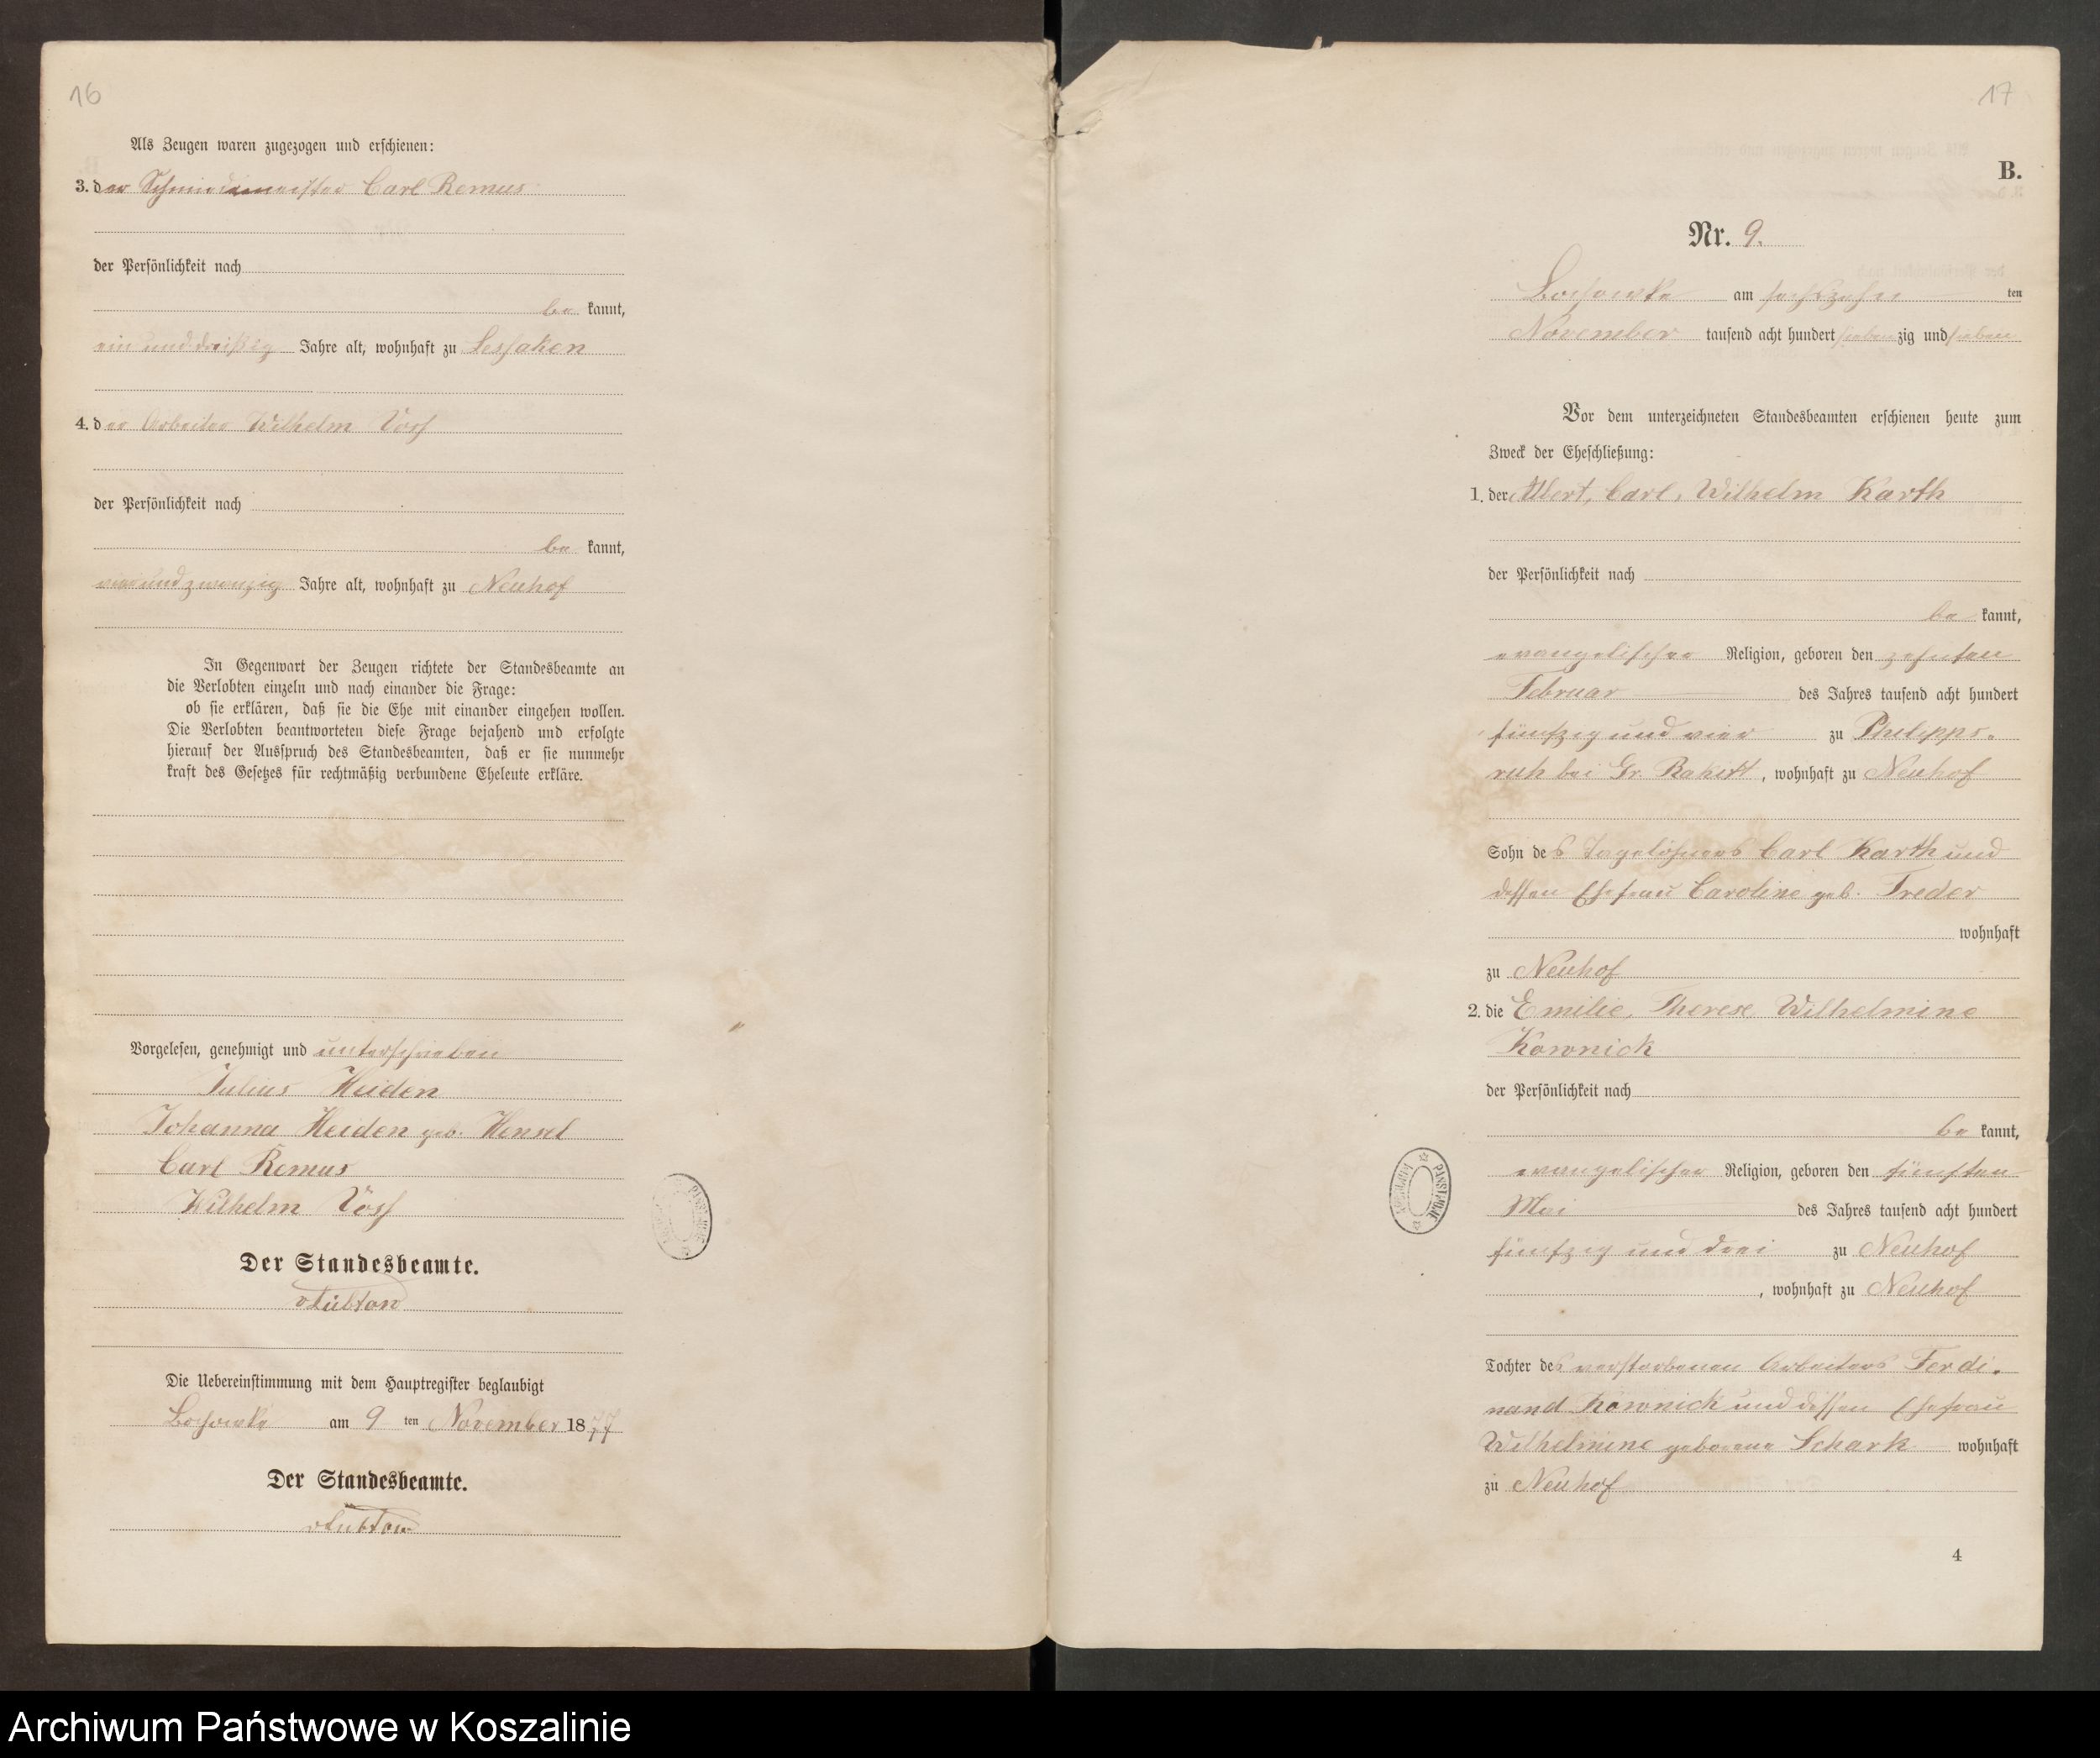 16
Als Zeugen waren zugezogen und erschienen:
3. der Schmiedemeister Carl Remus
der Persönlichkeit nach
be kannt,
ein und dreißig Jahre alt, wohnhaft zu Lessaken
4. der Arbeiter Wilhelm Voss
der Persönlichkeit nach
be kannt,
und zwanzig Jahre alt, wohnhaft zu Neuhof
In Gegenwart der Zeugen richtete der Standesbeamte an
die Verlobten einzeln und nach einander die Frage:
ob sie erklären, daß sie die Ehe mit einander eingehen wollen.
Die Verlobten beantworteten diese Frage bejahend und erfolgte
hierauf der Ausspruch des Standesbeamten, daß er sie nunmehr
kraft des Gesetzes für rechtmäßig verbundene Eheleute erkläre.
Vorgelesen, genehmigt und unterschrieben
Julius Heiden
Johanna Heiden geb. Hensel
Carl Remus
Wilhelm Voss
Der Standesbeamte.
Die Uebereinstimmung mit dem Hauptregister beglaubigt
Lochowke am 9 ten November 1877
Der Standesbeamte.
17
B.
Nr. 9.
Lochowke am sechszehn ten
November tausend acht hundert siebenzig und sieben
Vor dem unterzeichneten Standesbeamten erschienen heute zum
Zweck der Eheschließung:
1. der Albert, Carl, Wilhelm Karth
der Persönlichkeit nach
be kannt,
evangelischer Religion, geboren den zehnten
Februar des Jahres tausend acht hundert
fünfzig und vier zu Philipps-
ruh bei Gr. Rakitt, wohnhaft zu Neuhof
Sohn des Tagelöhners Carl Karth und
dessen Ehefrau Caroline geb. Treder
wohnhaft
zu Neuhof
2. die Emilie, Therese, Wilhelmine
Kownick
der Persönlichkeit nach
be kannt,
evangelischer Religion, geboren den fünften
Mai des Jahres tausend acht hundert
fünfzig und drei zu Neuhof
, wohnhaft zu Neuhof
Tochter des verstorbenen Arbeiters Ferdi-
nand Kownick und dessen Ehefrau
Wilhelmine geborene Schark wohnhaft
zu Neuhof
4
Archiwum Państwowe w Koszalinie